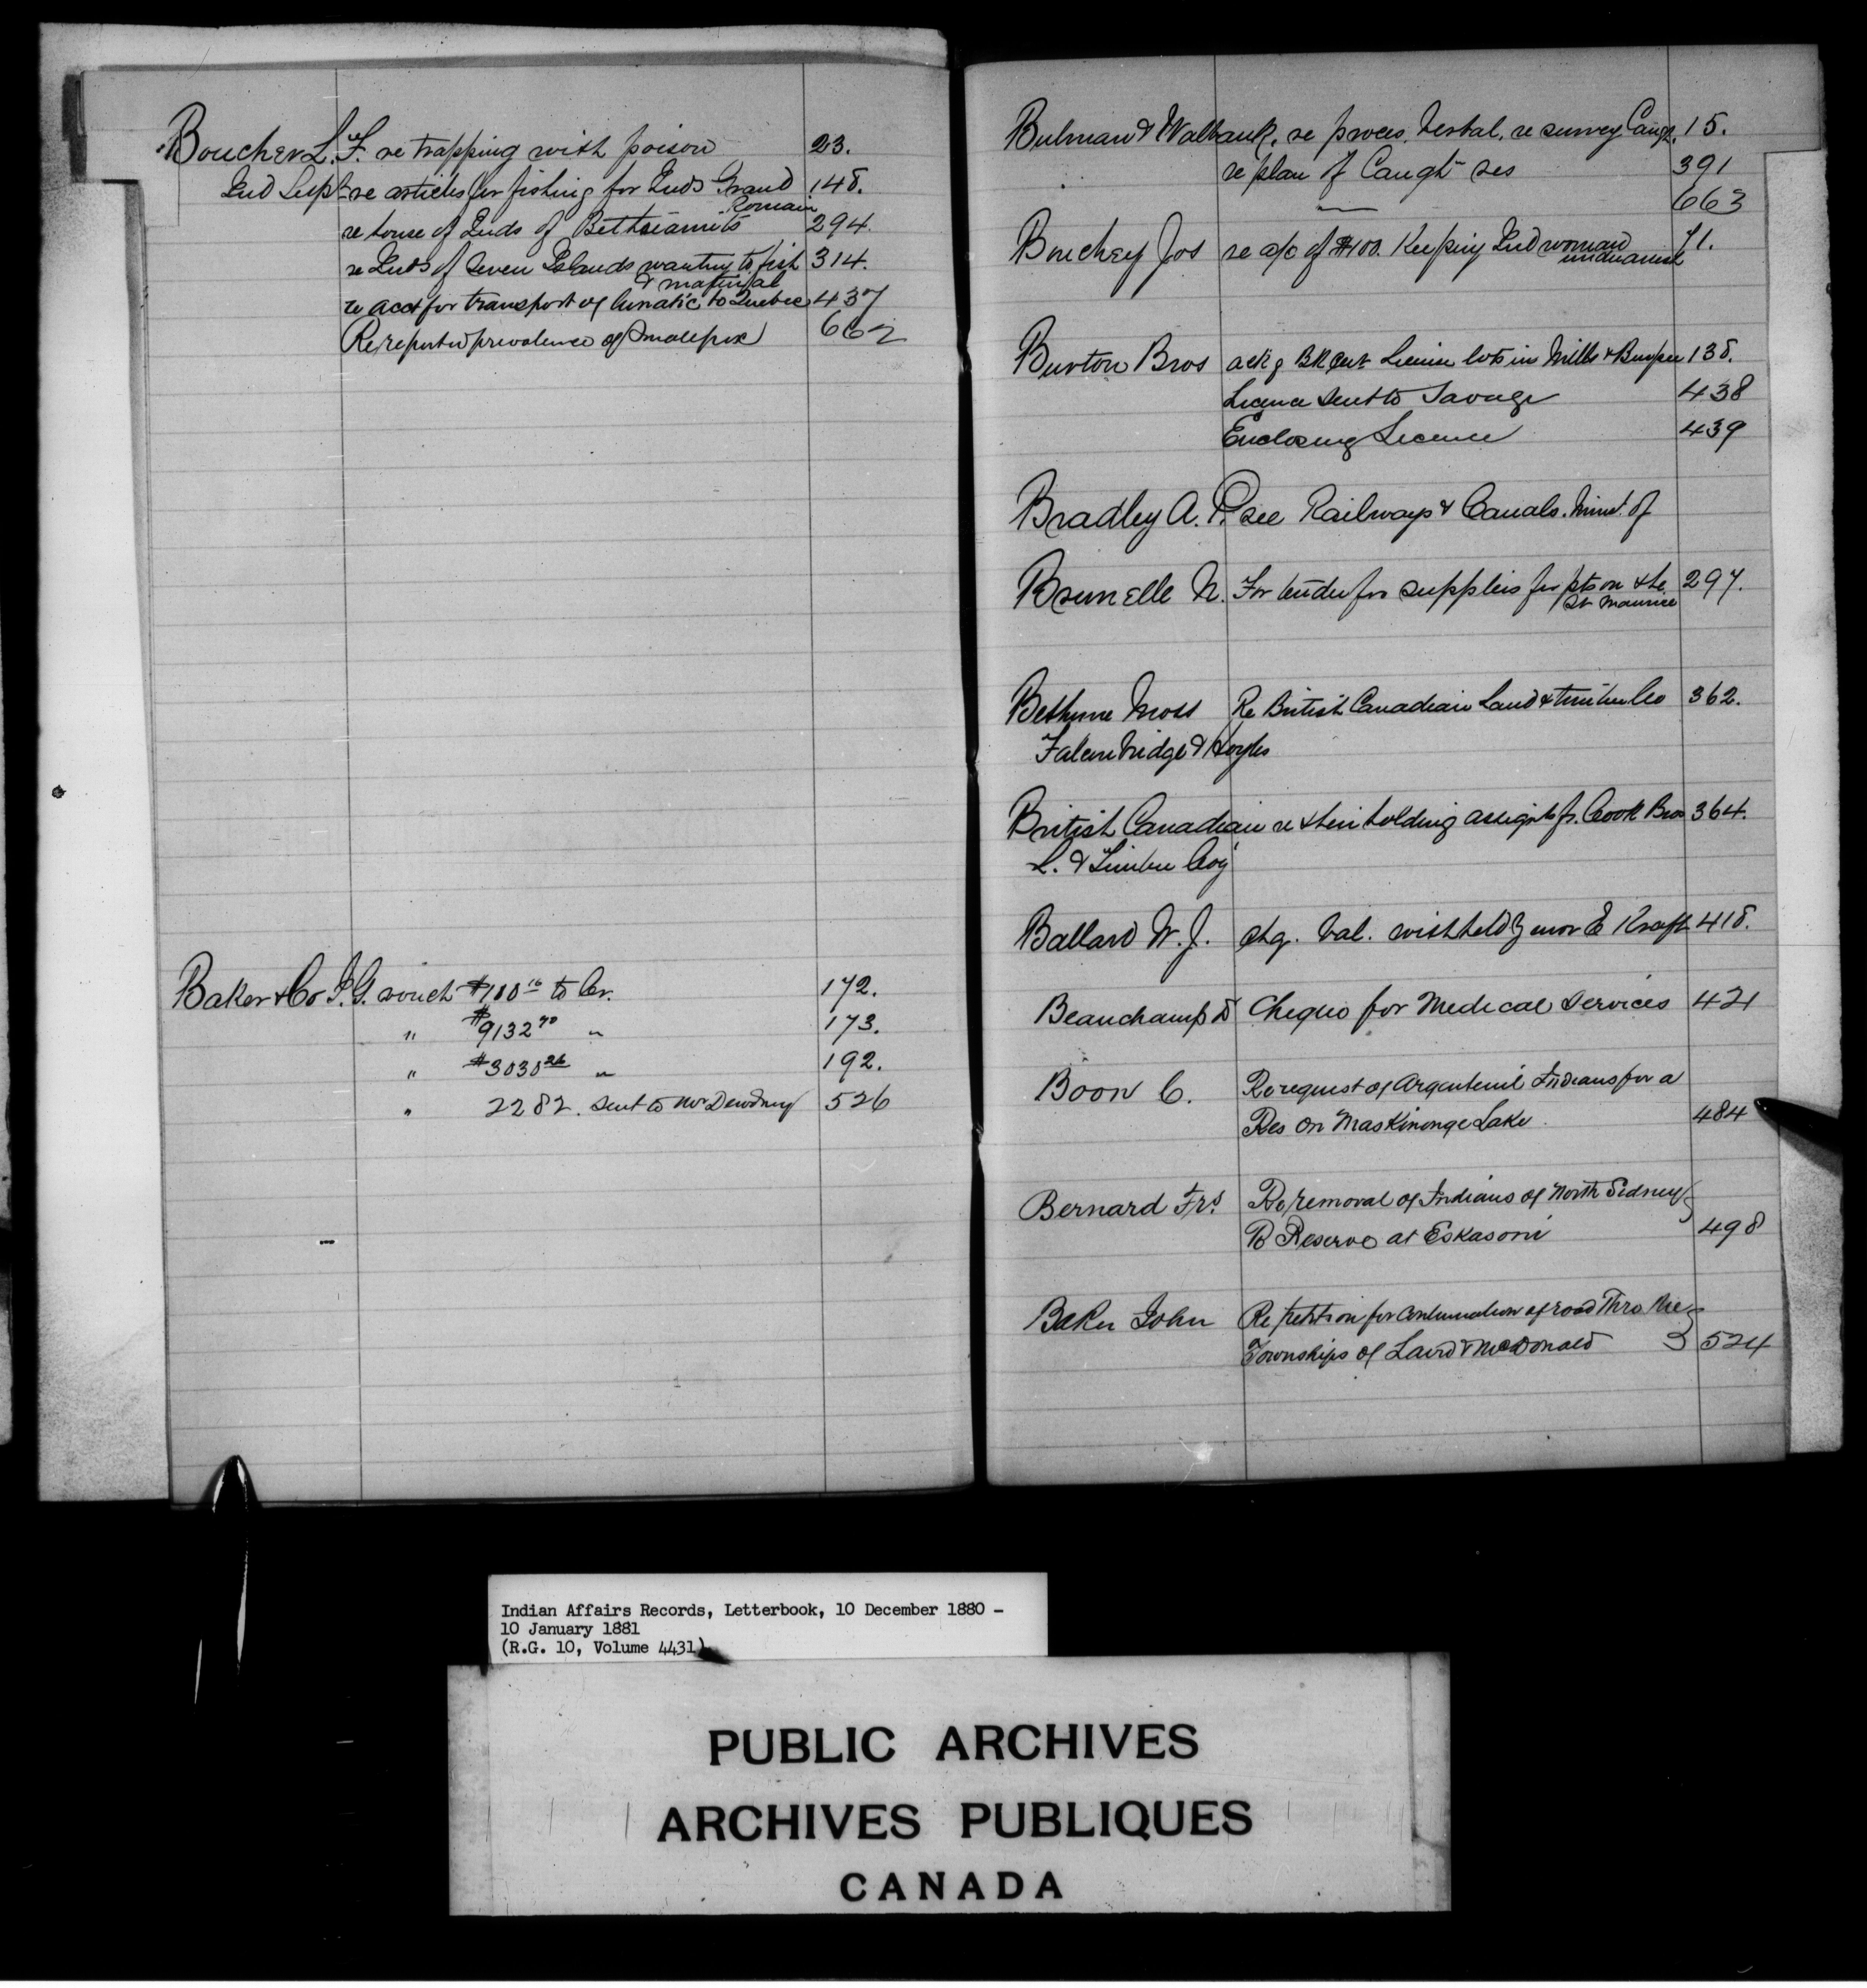 Boucher L. F. re trapping with poison 23.
Ind Supt re articles for fishing for Inds Grand Romain 148.
re house of Inds of Bethsiamits 294.
re Inds of Seven Islands wanting to fish 314.
re acct for transport of lunatic to Quebec 437
Re reported prevalence of Smallpox 662
Baker & Co I. G. vouch $100 to Cr. 172.
" $9132 70 " 173.
" $3030 26 " 192.
" 2282. sent to Mr Dewdney 526
Bulman & Walbank, re proces. verbal. re survey Caugh. 15.
re plan of Caught res 391
— 663
Bouchey Jos re a/c of $100. Keeping Ind woman 71.
Burton Bros ackg Licence lots in Mills & Burpee 138.
Licence sent to Savage 438
Enclosing Licence 439
Bradley A. P. see Railways & Canals. Minr. of
Brunelle N. For tender for supplies for pts on the St Maurice 297.
Bethune Moss Re British Canadian Land & timber Co 362.
Falconbridge & Hoyles
British Canadian re their holding assignts fr. Cook Bros 364.
L. & Timber Coy
Ballard W. J. chq. bal. withheld 418.
Beauchamp D Cheque for Medical Services 421
Boon C. Re request of Argenteuil Indians for a
Res on Maskinonge Lake. 484
Bernard Frs. Re removal of Indians of North Sidney
to Reserve at Eskasoni 498
Baker John Re petition for continuation of road Thro the
Townships of Laird & McDonald 524
Indian Affairs Records, Letterbook, 10 December 1880 -
10 January 1881
(R.G. 10, Volume 4431)
PUBLIC ARCHIVES
ARCHIVES PUBLIQUES
CANADA